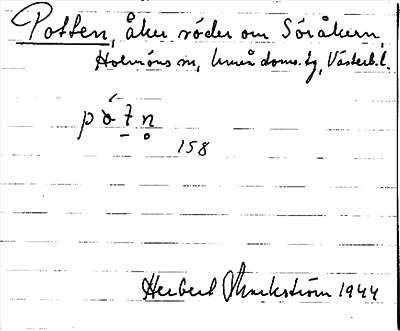 Potten, åker söder om Söråkern,
Holmöns sn, Umeå doms.tg, Västerb.l.
pòt̠n̥
158
Herbert Markström 1944